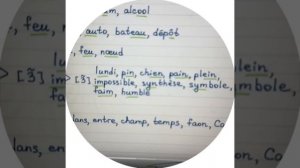 alcool
, auto, bateau, dépôt
, feu, nœud
> [ɛ̃] lundi, pin, chien, pain, plein,
impossible, synthèse, symbole,
faim, humble
entre, champ, temps, faon,